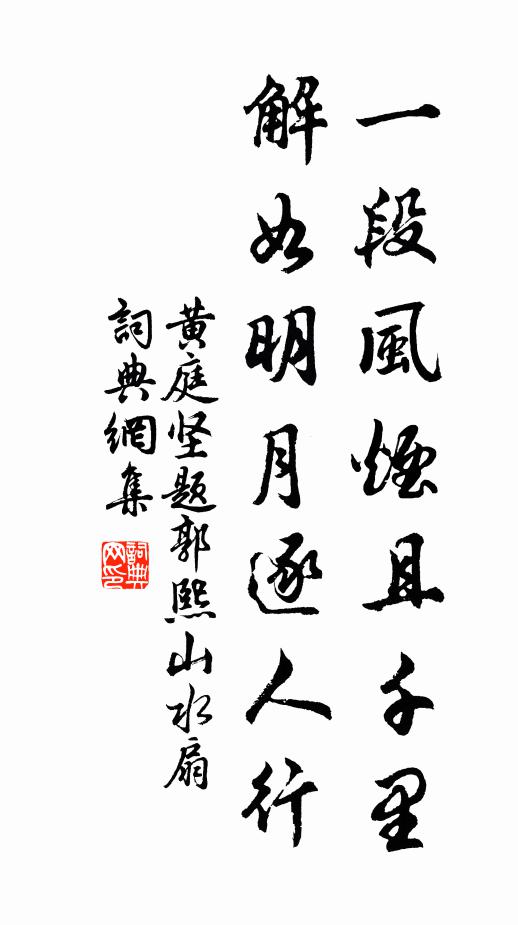 一段風煙且千里
解如明月逐人行
黄庭坚题郭熙山水扇
詞典網集
詞典
网印